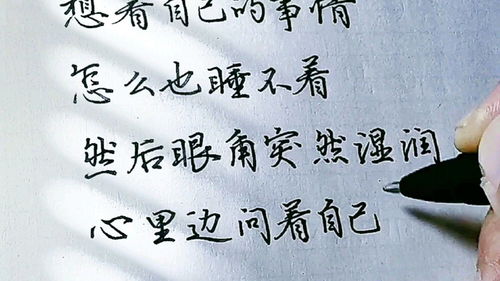 想着自己的事情
怎么也睡不着
然后眼角突然湿润
心里边问着自己